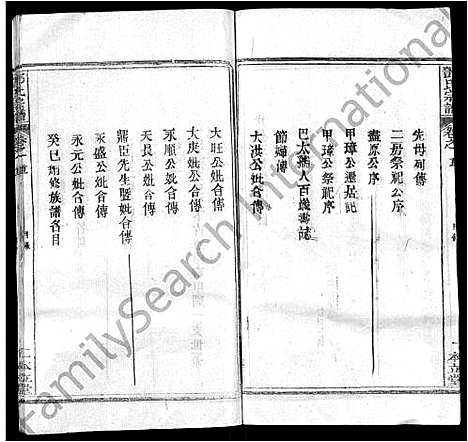 先母列傳
二房祭祀公序
盡原公序
甲璋公遷居記
甲璋公祭祀序
巴太孺人百歲壽誌
節婦傳
大洪公妣合傳
大旺公妣合傳
大庚妣公合傳
永順公妣合傳
天長公妣合傳
鼎臣先生暨妣合傳
永盛公妣合傳
永元公妣合傳
癸巳創修族譜名目
目錄
FamilySearch International